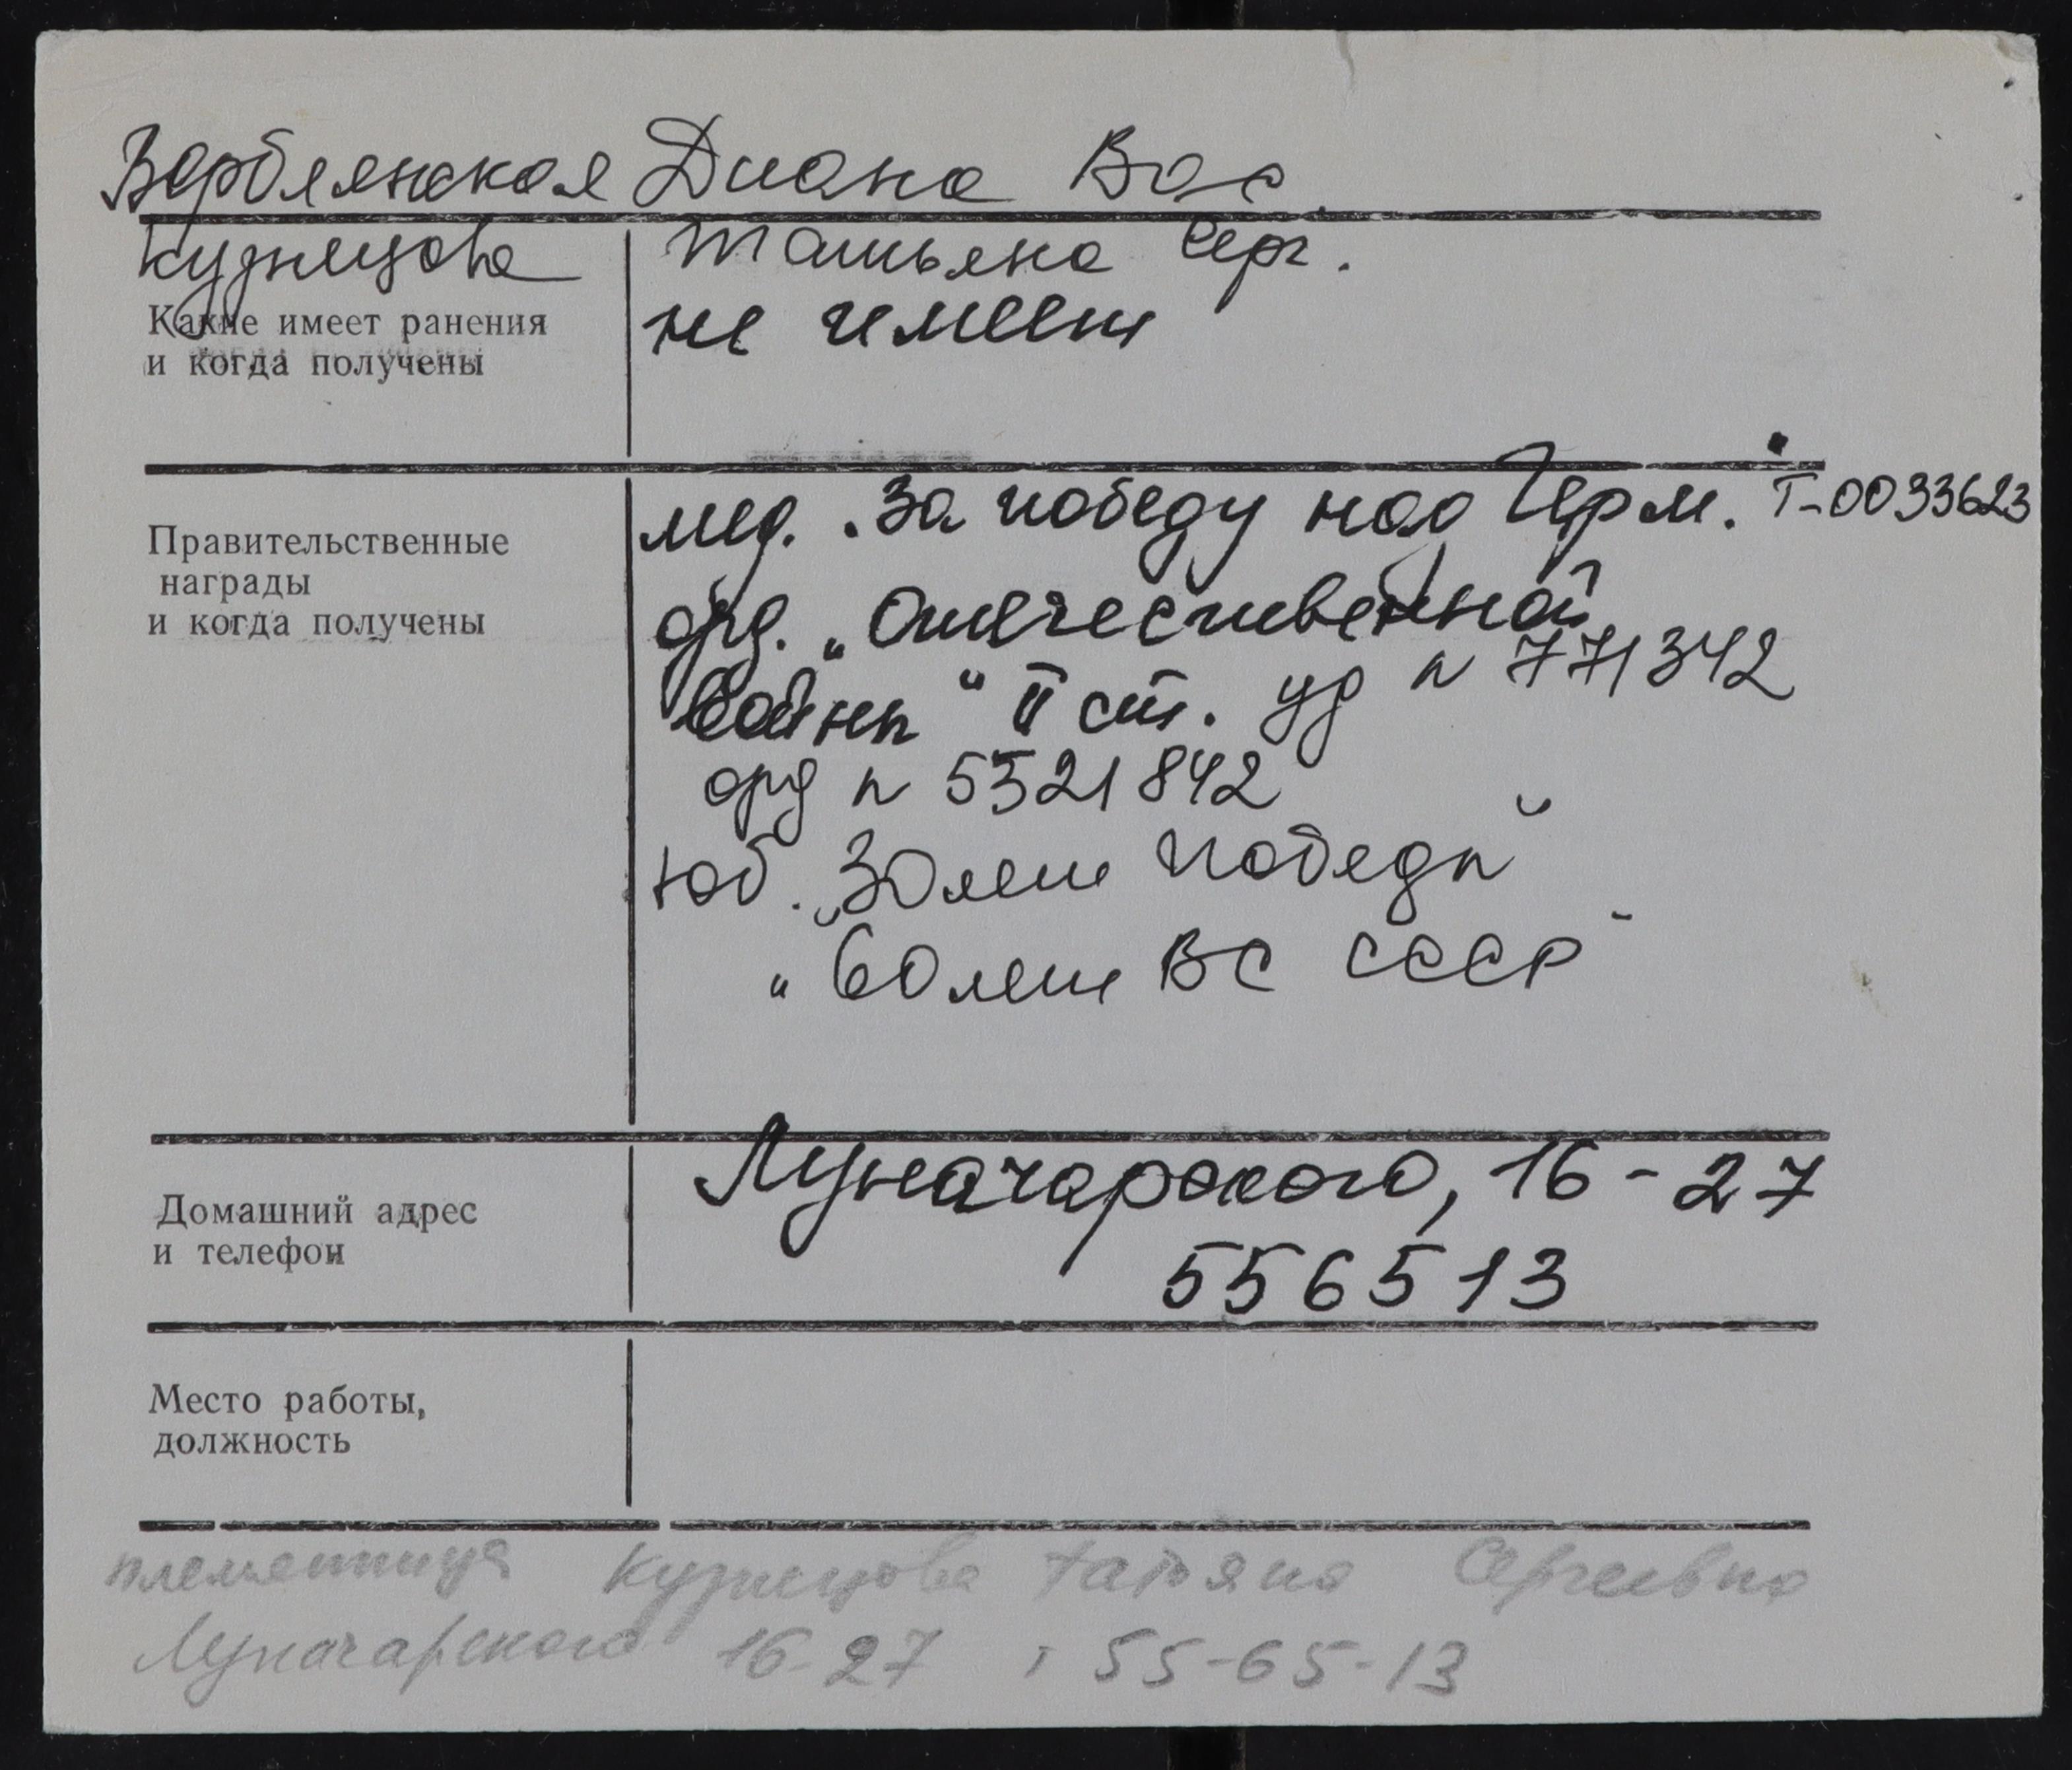 Верблянская Диана Вас.
Кузнецова Татьяна Серг.
Какие имеет ранения
и когда получены
не имеет
Правительственные
награды
и когда получены
мед. „За победу над Герм." Т-0033623
орд. „Отечественной
войны" II ст. уд № 771342
орд № 5521842
юб. „30 лет Победы"
„60 лет ВС СССР"
Домашний адрес
и телефон
Луначарского, 16-27
556513
Место работы,
должность
племянница Кузнецова Татьяна Сергеевна
Луначарского 16-27 т 55-65-13